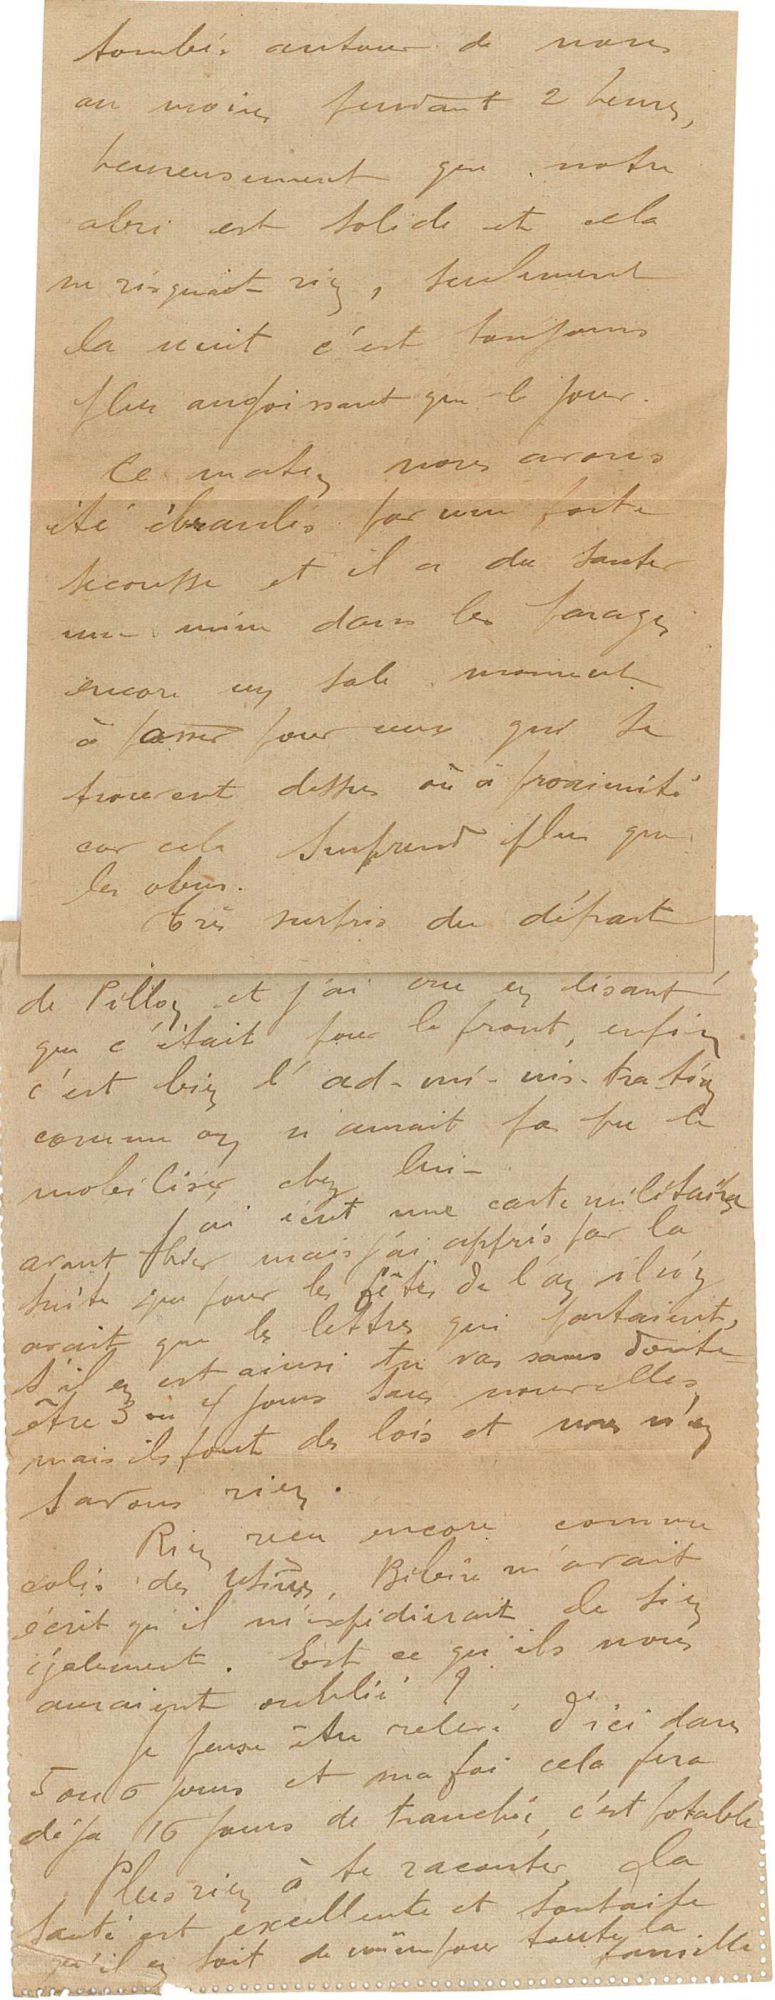 tombés autour de nous
au moins pendant 2 heures,
heureusement que notre
abri est solide et cela
ne risquait rien, seulement
la nuit c'est toujours
plus angoissant que le jour.
Ce matin nous avons
été ébranlés par une forte
secousse et il a du sauter
une mine dans les parages
encore un sale moment
à passer pour ceux qui se
trouvent dessus où à proximité
car cela surprend plus que
les obus.
Très surpris du départ
de Pilloy et j'ai cru en lisant
que c'était pour le front, enfin
c'est bien l'ad-mi-nis-tration
comme on n'aurait pas pu le
mobiliser chez lui-
J'ai écrit une carte militaire
avant hier mais j'ai appris par la
suite que pour les fêtes de l'an il n'y
avait que les lettres qui partaient,
s'il en est ainsi tu vas sans doute
être 3 ou 4 jours sans nouvelles,
mais ils font des lois et nous n'en
savons rien.
Rien reçu encore comme
colis des usines, m'avait
écrit qu'il m'expédierait le sien
également. Est ce qu'ils nous
auraient oublié ?
Je pense être relevé d'ici dans
5 ou 6 jours et ma foi cela fera
déjà 16 jours de tranchée, c'est potable
Plus rien à te raconter, la
santé est excellente et souhaite
qu'il en soit de même pour toute la
famille